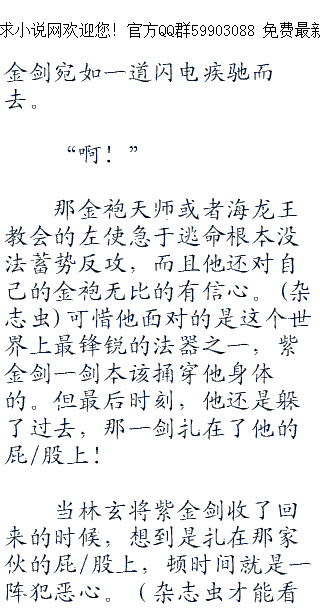 求小说网欢迎您！官方QQ群59903088 免费最新
金剑宛如一道闪电疾驰而
去。
“啊！”
那金袍天师或者海龙王
教会的左使急于逃命根本没
法蓄势反攻，而且他还对自
己的金袍无比的有信心。(杂
志虫)可惜他面对的是这个世
界上最锋锐的法器之一，紫
金剑一剑本该捅穿他身体
的。但最后时刻，他还是躲
了过去，那一剑扎在了他的
屁/股上！
当林玄将紫金剑收了回
来的时候，想到是扎在那家
伙的屁/股上，顿时间就是一
阵犯恶心。（杂志虫才能看